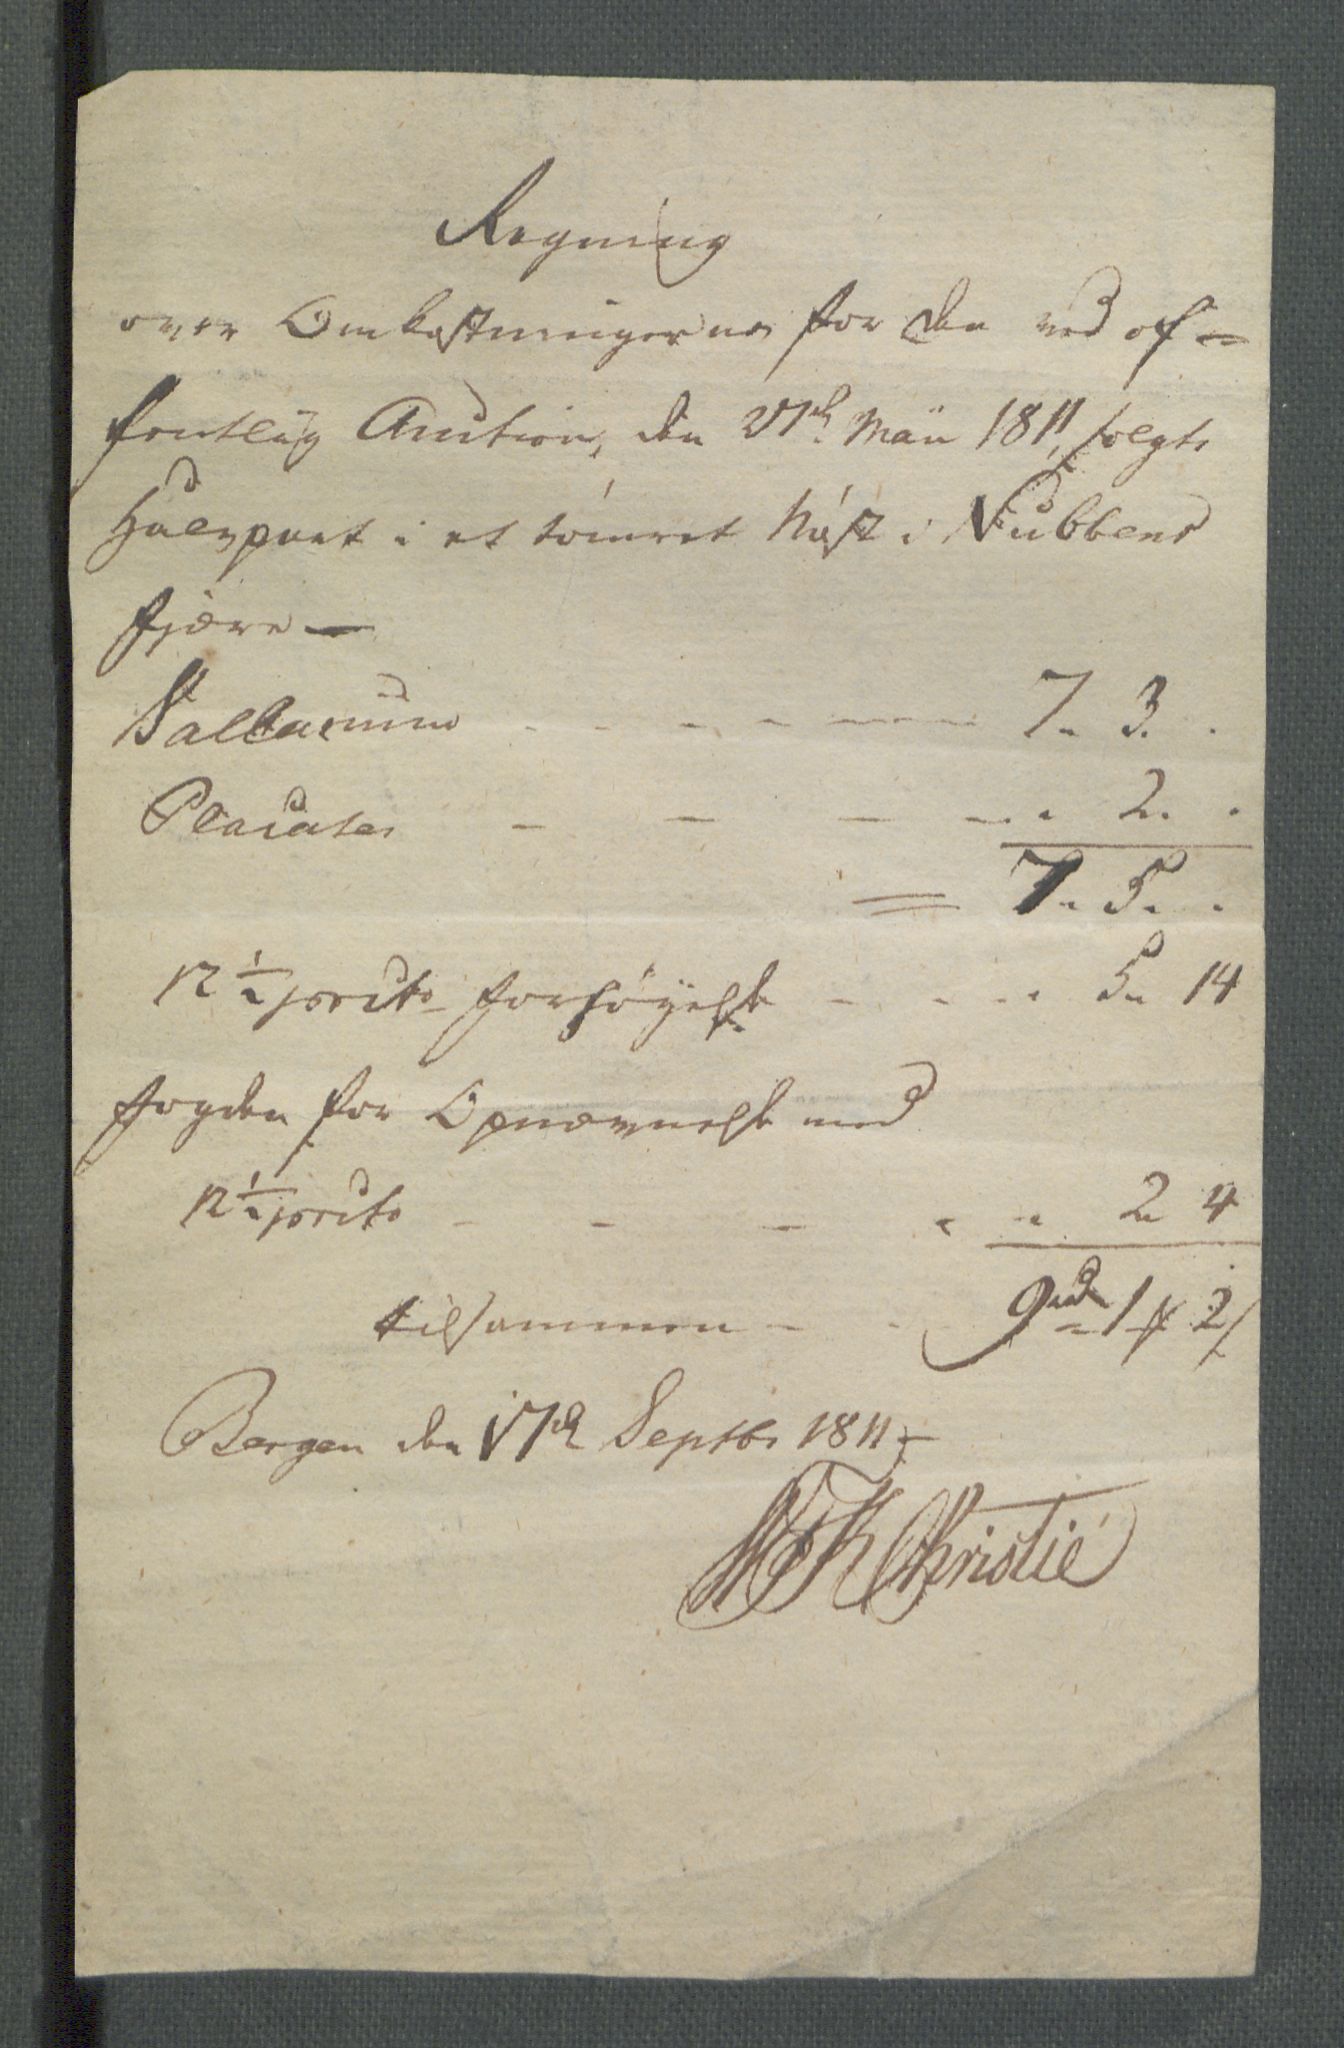 Regning
over Omkostningerne for den ved of-
fentlig Auction, den 27de Maii 1811, solgte
Halvpart i et tømret Nøst i Nubbens
fjære —
Sallarium - - - - - 7. 3. .
Placater - - - - . 2. .
= 7. 5. .
12 1/2 procto forhøyelse - - - . 5. 14
fogden for Opnævnelse med
12 1/2 procto - - - - . 2. 4
tilsammen - - 9rd 1 # 2 s
Bergen den 17de Septbr 1811 -
WFK Christie